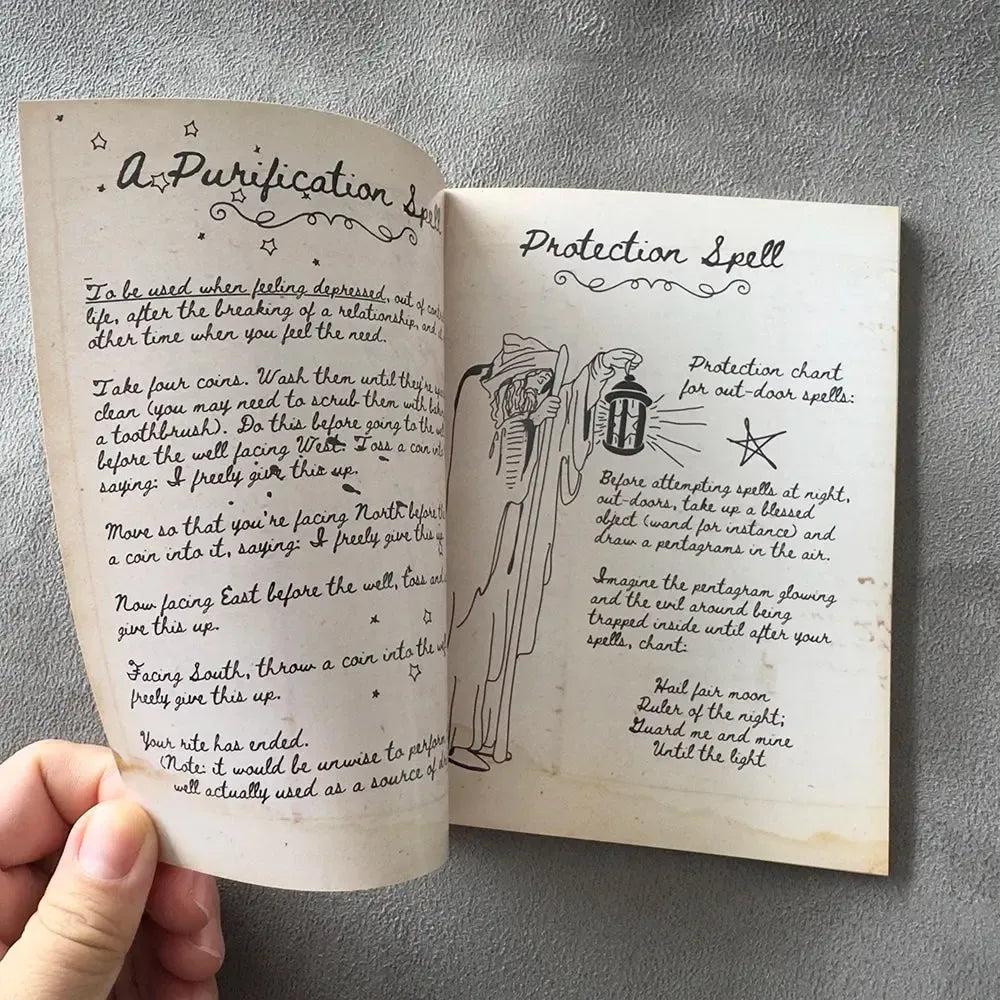 A Purification Spell
To be used when feeling depressed, out of
life, after the breaking of a relationship, and
other time when you feel the need.
Take four coins. Wash them until they're
clean (you may need to scrub them with
a toothbrush). Do this before going to the
before the well facing West. Toss a coin
saying: I freely give this up.
Move so that you're facing North before
a coin into it, saying: I freely give this up
Now facing East before the well, toss
give this up.
Facing South, throw a coin into the
freely give this up.
Your rite has ended.
(Note: it would be unwise to perform
well actually used as a source of
Protection Spell
Protection chant
for out-door spells:
Before attempting spells at night,
out-doors, take up a blessed
object (wand for instance) and
draw a pentagrams in the air.
Imagine the pentagram glowing
and the evil around being
trapped inside until after your
spells, chant:
Hail fair moon
Ruler of the night;
Guard me and mine
Until the light